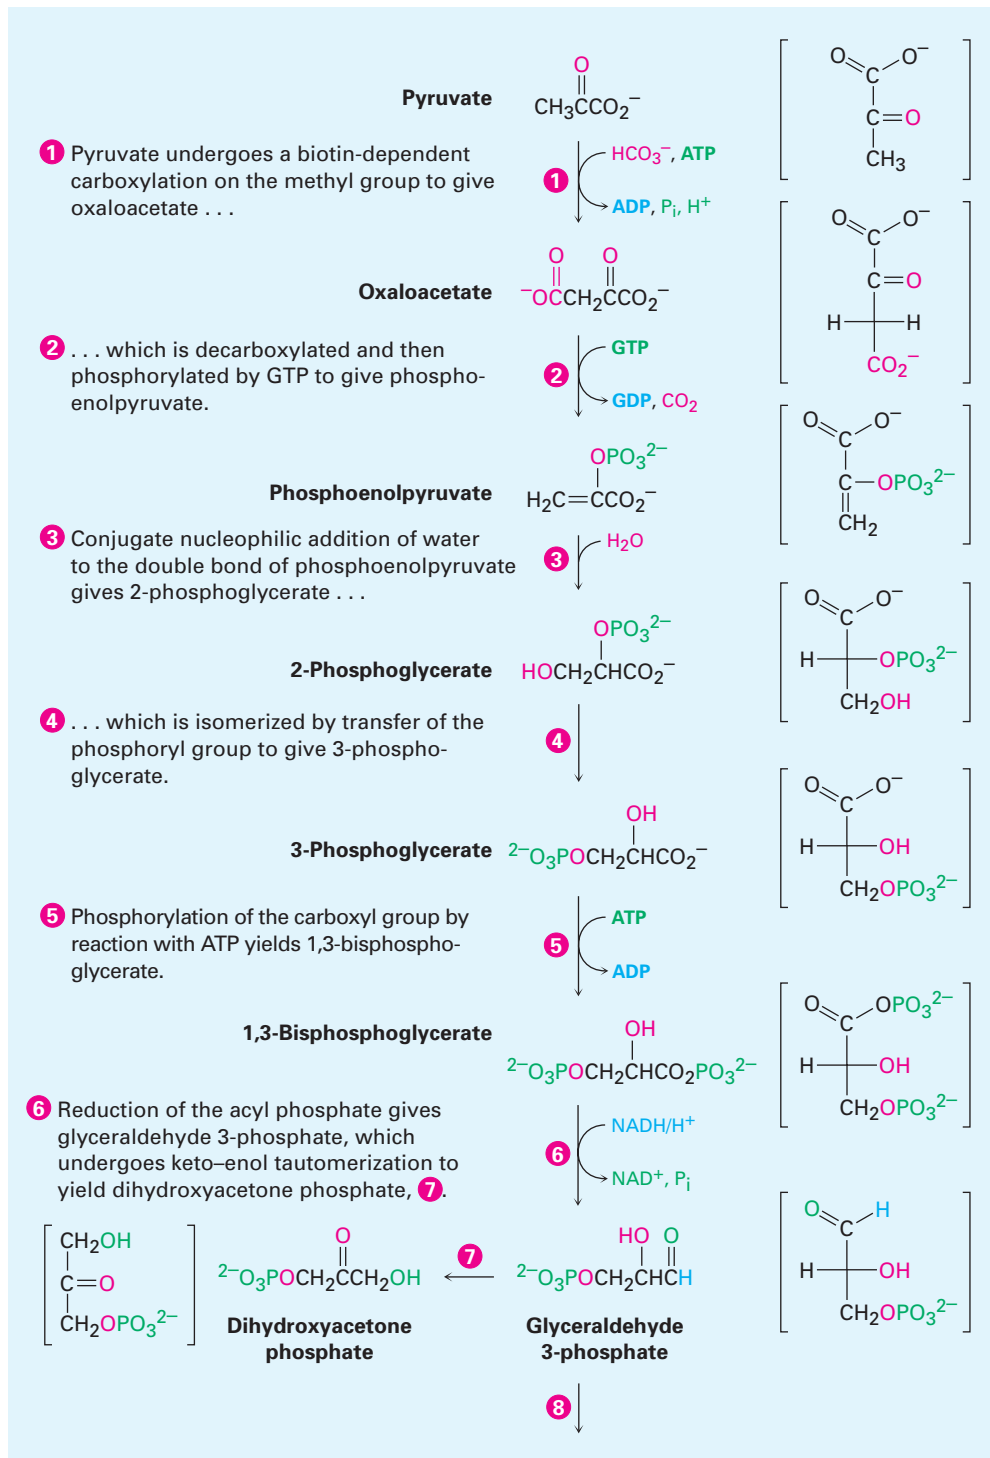 Pyruvate
O
CH₃CCO₂⁻
O O⁻
C
C=O
CH₃
1 Pyruvate undergoes a biotin-dependent
carboxylation on the methyl group to give
oxaloacetate . . .
1
HCO₃⁻, ATP
ADP, Pᵢ, H⁺
Oxaloacetate
O O
⁻OCCH₂CCO₂⁻
O O⁻
C
C=O
H H
CO₂⁻
2 . . . which is decarboxylated and then
phosphorylated by GTP to give phospho-
enolpyruvate.
2
GTP
GDP, CO₂
Phosphoenolpyruvate
OPO₃²⁻
H₂C=CCO₂⁻
O O⁻
C
C—OPO₃²⁻
CH₂
3 Conjugate nucleophilic addition of water
to the double bond of phosphoenolpyruvate
gives 2-phosphoglycerate . . .
3
H₂O
2-Phosphoglycerate
OPO₃²⁻
HOCH₂CHCO₂⁻
O O⁻
C
H OPO₃²⁻
CH₂OH
4 . . . which is isomerized by transfer of the
phosphoryl group to give 3-phospho-
glycerate.
4
3-Phosphoglycerate
OH
²⁻O₃POCH₂CHCO₂⁻
O O⁻
C
H OH
CH₂OPO₃²⁻
5 Phosphorylation of the carboxyl group by
reaction with ATP yields 1,3-bisphospho-
glycerate.
5
ATP
ADP
1,3-Bisphosphoglycerate
OH
²⁻O₃POCH₂CHCO₂PO₃²⁻
O OPO₃²⁻
C
H OH
CH₂OPO₃²⁻
6 Reduction of the acyl phosphate gives
glyceraldehyde 3-phosphate, which
undergoes keto–enol tautomerization to
yield dihydroxyacetone phosphate, 7.
6
NADH/H⁺
NAD⁺, Pᵢ
CH₂OH
C=O
CH₂OPO₃²⁻
O
²⁻O₃POCH₂CCH₂OH
Dihydroxyacetone
phosphate
7
HO O
²⁻O₃POCH₂CHCH
Glyceraldehyde
3-phosphate
O H
C
H OH
CH₂OPO₃²⁻
8